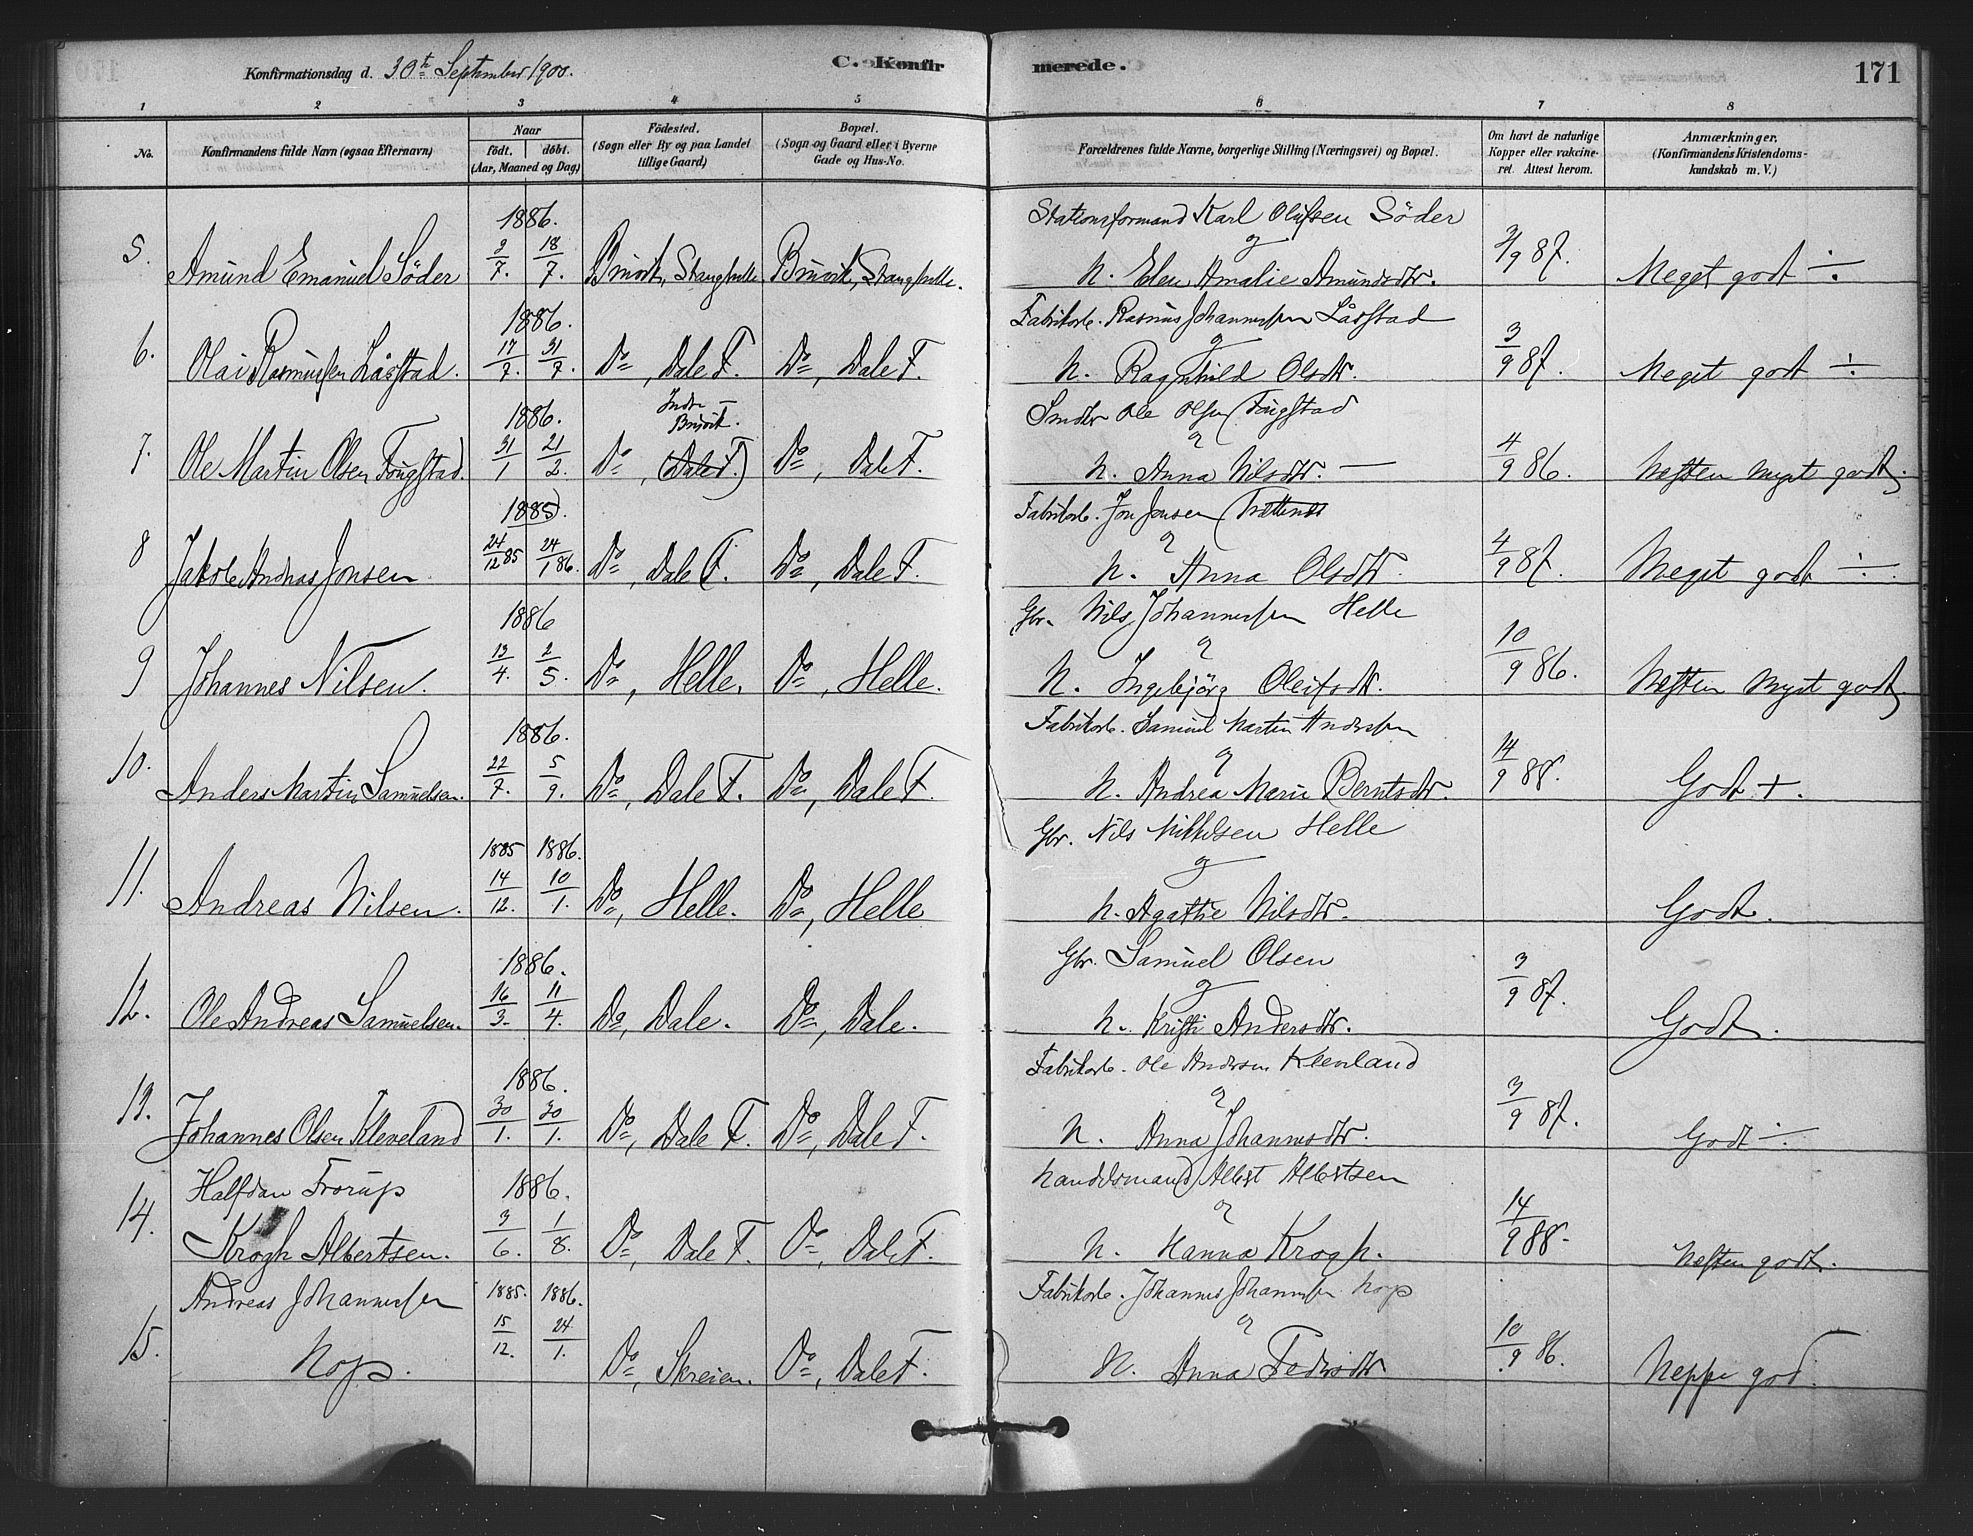 Konfirmationsdag d. 30te September 1900.
C. Konfir merede.
171
1 2 3 4 5 6 7 8
No.
Konfirmandens fulde Navn (ogsaa Efternavn)
Naar
födt. döbt.
(Aar, Maaned og Dag)
Födested.
(Sogn eller By og paa Landet
tillige Gaard)
Bopæl.
(Sogn og Gaard eller i Byerne
Gade og Hus-No.
Forældrenes fulde Navne, borgerlige Stilling (Næringsvei) og Bopæl.
Om havt de naturlige
Kopper eller vakcine-
ret. Attest herom.
Anmærkninger.
(Konfirmandens Kristendoms-
kundskab m. V.)
1886. Stationsformand Karl Olufsen Söder
5. Amund Emanuel Söder 2/7. 18/7. Bruvik, Bruvik, og 3/9 87.
N. Elen Amalie Amundsdtr. Meget godt ÷
1886. Fabrikarb. Rasmus Johannessen Låstad
6. Olai Rasmussen Låstad. 17/7. 31/7. Do, Dale F. Do, Dale F. og 3/9 87.
N. Ragnhild Olsdtr. Meget godt ÷
1886. Indre Bruvik. Ole Olsen Fougstad
7. Ole Martin Olsen Fougstad. 31/1 21/2. Do, (Dale F.) Do, Dale F. og 4/9 86.
N. Anna Nilsdtr. — Næsten meget godt.
1885. Fabrikarb. Jon Jonsen
8 Jakob Andreas Jonsen 24/12 85 24/1 86. Do, Dale F. Do, Dale F. og 4/9 87.
N. Anna Olsdtr. Meget godt ÷
1886 Gbr. Nils Johannessen Helle
9 Johannes Nilsen. 13/4. 2/5. Do, Helle. Do, Helle. og 10/9 86.
N. Ingebjörg Olsdtr. Næsten meget godt.
1886. Fabrikarb. Samuel Martin Andersen
10. Anders Martin Samuelsen. 22/7. 5/9. Do, Dale F. Do, Dale F. og 14/9 88.
N. Andrea Marie Berntsdtr. Godt +.
1885 1886. Gbr. Nils Mikkelsen Helle
11. Andreas Nilsen. 14/12. 10/1. Do, Helle. Do, Helle og
N. Agathe Nilsdtr. Godt.
1886. Gbr. Samuel Olsen
12. Ole Andreas Samuelsen. 16/3. 11/4. Do, Dale. Do, Dale. og 3/9 87.
N. Kristi Andersdtr. Godt.
1886. Fabrikarb. Ole Andersen Kleveland
13. Johannes Olsen Kleveland 30/1. 30/1. Do, Dale F. Do, Dale F. og 3/9 87.
N. Anna Johannesdtr. Godt ÷
Halfdan Frorup 1886. Handelsmand Albert Albertsen
14. Krogh Albertsen. 3/6. 1/8. Do, Dale F. Do, Dale F. og 14/9 88.
N. Hanna Krogh. Næsten godt.
Andreas Johannessen 1885. 1886. Fabrikarb. Johannes Johannessen Hops
15. Hops. 15/12. 24/1. Do, Skreien. Do, Dale F. og 10/9 86.
N. Anna Pedersdtr Neppe god.